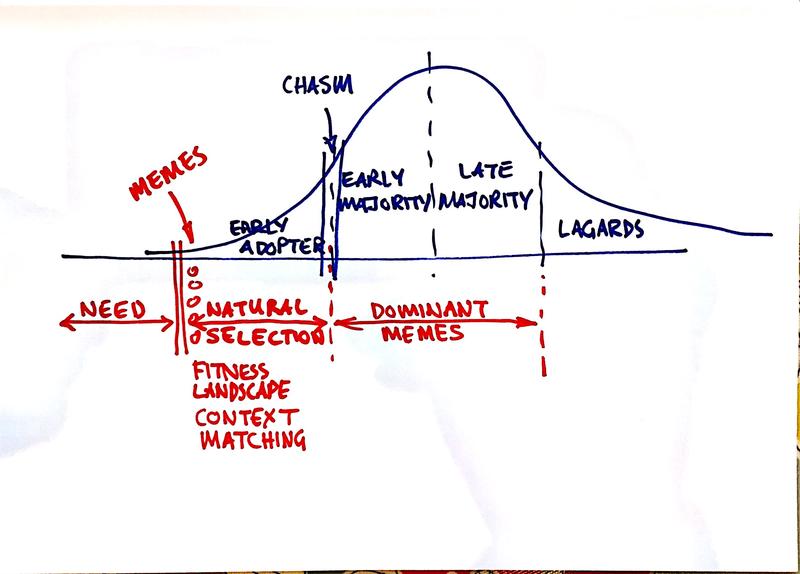 CHASM
MEMES
EARLY
ADOPTER
EARLY
MAJORITY
LATE
MAJORITY
LAGARDS
NEED
NATURAL
SELECTION
DOMINANT
MEMES
FITNESS
LANDSCAPE
CONTEXT
MATCHING